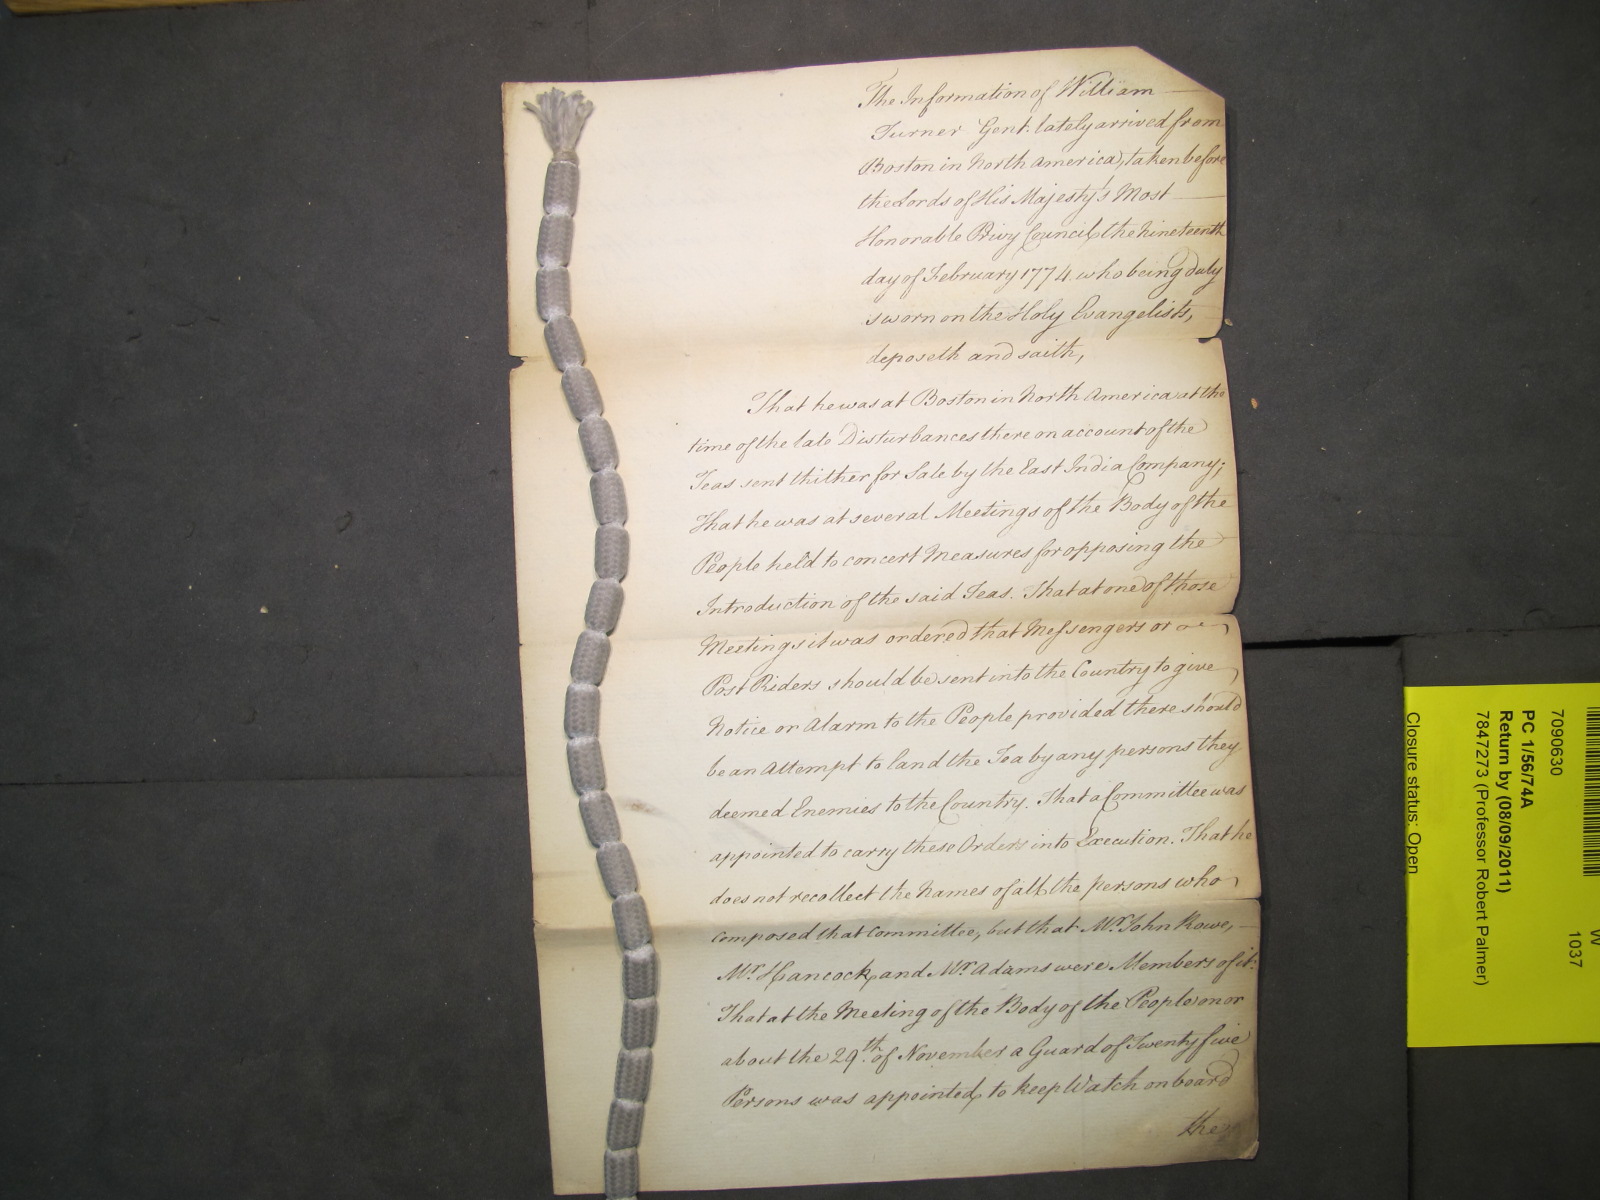 The Information of William
Turner Gent. lately arrived from
Boston in North America, taken before
the Lords of His Majesty's Most
Honorable Privy Council, the Nineteenth
day of February 1774. who being duly
sworn on the Holy Evangelists,
deposeth and saith,
That he was at Boston in North America at the
time of the late Disturbances there on account of the
Teas sent thither for Sale by the East India Company;
That he was at several Meetings of the Body of the
People held to concert Measures for opposing the
Introduction of the said Teas. That at one of those
Meetings it was ordered that Messengers or
Post Riders should be sent into the Country to give
Notice or Alarm to the People provided there should
be an Attempt to land the Tea by any persons they
deemed Enemies to the Country. That a Committee was
appointed to carry these Orders into Execution. That he
does not recollect the Names of all the persons who
composed that Committee, but that Mr. John Rowe,
Mr. Hancock, and Mr. Adams were Members of it.
That at the Meeting of the Body of the People on or
about the 29th. of November a Guard of Twenty five
Persons was appointed, to keep Watch on board
the
W
1037
7090630
PC 1/56/74A
Return by (08/09/2011)
7847273 (Professor Robert Palmer)
Closure status: Open